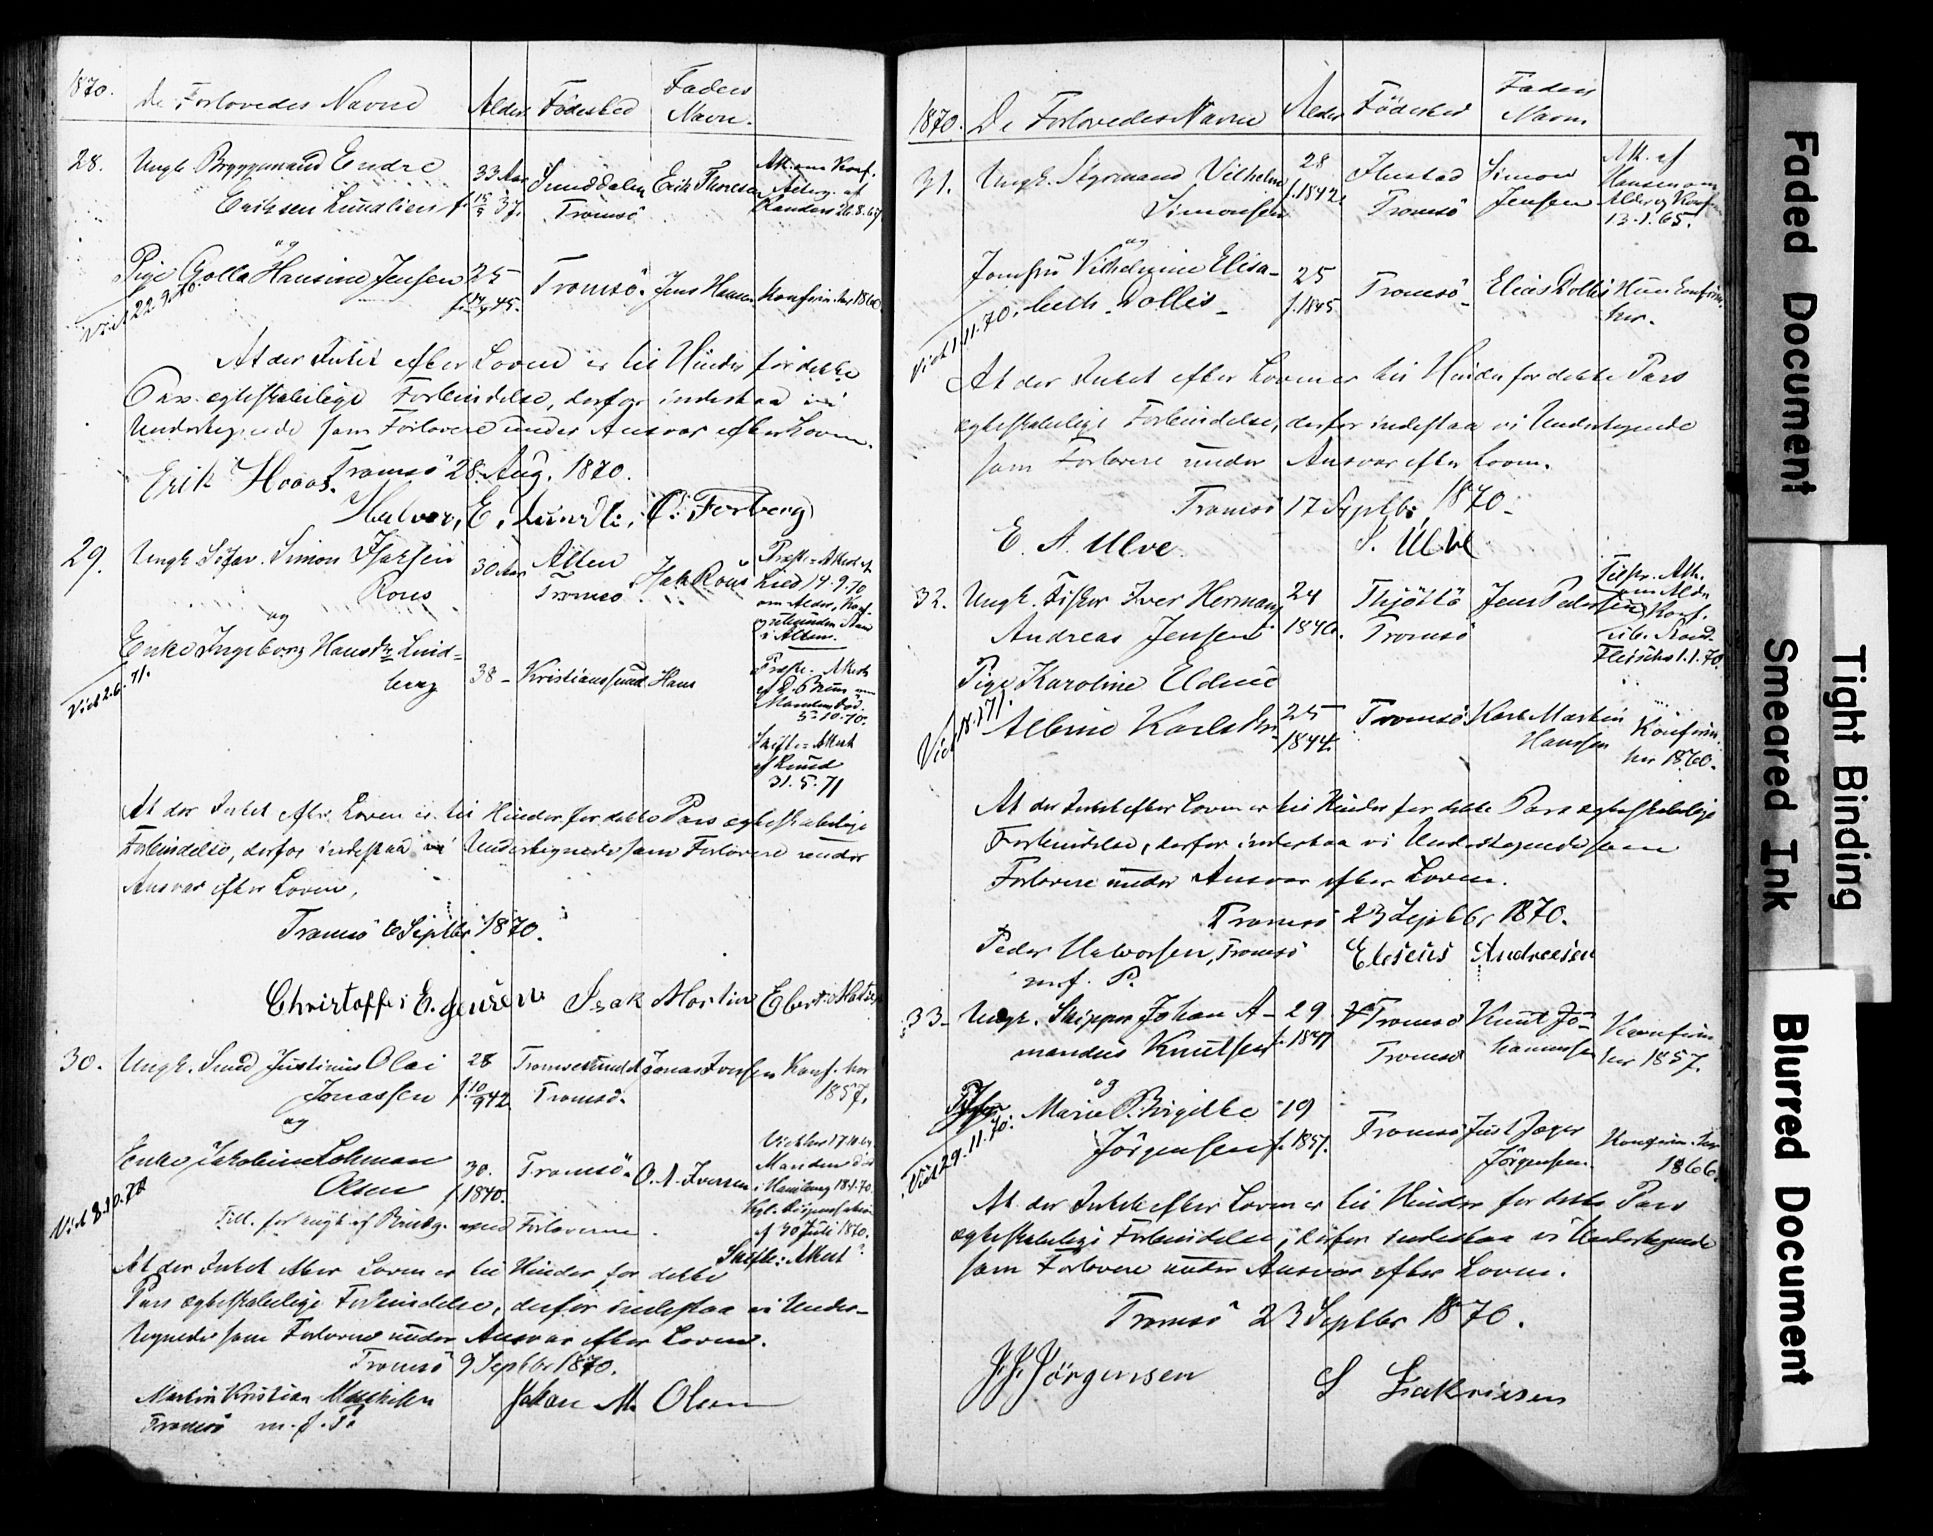 1870.
De Forlovedes Navne
Alder
Födested
Faders
Navn.
28.
Ungk. Bryggemand Endre
Eriksen Lundlien
33 Aar
f. 15/9 37.
Sunddalen
Tromsö
Erik Thoresen
Att. om Konf.
Alder
Randers 26.8.67
og
Pige Golla Hansine Jensen
Viet 22.9.70.
25
45.
Tromsö.
Jens Hansen
Konfirm. her 1860.
At der Intet efter Loven er til Hinder for dette
Pars ægteskabelige Forbindelse, derfor indestaa vi
Undertegnede som Forlovere under Ansvar efter Loven.
Tromsö 28. Aug. 1870.
Erik Hoaas.
Halvor, E, Lundli,
C. Forberg
29.
Ungk. Simon Isaksen
Rous
30 Aar
Alten
Tromsö
Isak Rous
Præste-Attest
Lied 14.9.70
om Alder, Konf.
i Alten.
og
Enke Ingeborg Hansdtr Lind=
berg
Viet 2.6.71.
38 -
Kristianssund
Hans
Præste-Attest
af Brun om
Mandens Död.
5.10.70.
Skifte=Attest
af Lund
31.5.71
At der Intet efter Loven er til Hinder for dette Pars ægteskabelige
Forbindelse, derfor indestaa vi Undertegnede som Forlovere under
Ansvar efter Loven.
Tromsö 6 Septbr 1870.
Christoffer E. Jensen
Isak Martin Ebert
30.
Ungk. Justinus Olai
Jonassen
28
f. 10/9 42
Tromsesundet
Tromsö.
Jonas Iversen
Konf. her
1857.
og
Enke Jakobine Lohman
Olsen
Viet 8.10.70
30.
f. 1840.
Tromsö.
O. A. Iversen
Manden död
i Hamburg 18.1.70.
af 30 Juli 1870.
Skifte: Attest?
Till. for af Brudg. med Forloverne.
At der Intet efter Loven er til Hinder for dette
Pars ægteskabelige Forbindelse, derfor indestaa vi Under-
tegnede som Forlovere under Ansvar efter Loven.
Tromsö 9 Septbr 1870.
Martin Kristian Mathisen
Tromsö m. f. P.
Johan M. Olsen
1870.
De Forlovedes Navne
Alder
Födested
Faders
Navn.
31.
Ungk. Styrmand Vilhelm
Simonsen
28
f. 1842.
Tromsö
Simon
Jensen
Att. af
Hansen om
Alder og Konf.
13.1.65.
og
Jomfru Vilhelmine Elisa-
beth Dollis -
Viet 1.11.70.
25
f. 1845
Tromsö -
Elias Dollis
Hun konfirm.
her.
At der Intet efter Loven er til Hinder for dette Pars
ægteskabelige Forbindelse, derfor indestaa vi Undertegnede
som Forlovere under Ansvar efter Loven.
Tromsö 17 Septbr. 1870.
E. A. Ulve.
S. Ulve
32.
Ungk. Fisker Iver Herman
Andreas Jensen
24
1846.
Thjöttö
Tromsö
Jens Pedersen
Att.
om Alder
Konf.
Fleischer 1.1.70.
Pige Karoline Eldine
Albine Karlsdtr.
Viet 18.1.71.
25
1844.
Tromsö
Karl Martin
Hansen
Konfirm.
her 1860.
At der Intet efter Loven er til Hinder for dette Pars ægteskabelige
Forbindelse, derfor indestaa vi Undertegnede som
Forlovere under Ansvar efter Loven.
Tromsö 23 Septbr 1870.
Peder Halvorsen, Tromsö
m. f. P.
Eliseus Andreesen
33-
Ungk. Skipper Johan A-
mandus Knutsen
29
f. 1841
Tromsö
Tromsö
Knut Jo-
hannessen
Konfirm.
her 1857.
og
Marie Birgitte
Jörgensen
Viet 29.11.70.
19
f. 1851.
Tromsö
Just Jæger
Jörgensen.
Konfirm. her
1866
At der Intet efter Loven er til Hinder for dette Pars
ægteskabelige Forbindelse, derfor indestaa vi Undertegnede
som Forlovere under Ansvar efter Loven.
Tromsö 23 Septbr 1870.
J. J. Jörgensen
S Isakrissen
Faded Document
Tight Binding
Smeared Ink
Blurred Document